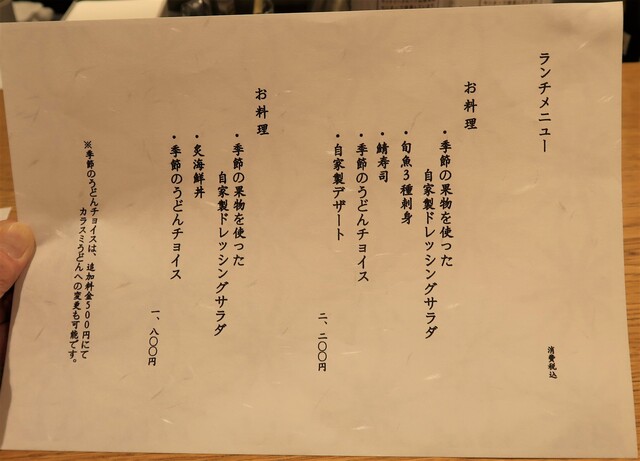 ランチメニュー
消費税込
お料理
・季節の果物を使った
自家製ドレッシングサラダ
・旬魚3種刺身
・鯖寿司
・季節のうどんチョイス
・自家製デザート
二、二〇〇円
お料理
・季節の果物を使った
自家製ドレッシングサラダ
・炙海鮮丼
・季節のうどんチョイス
一、八〇〇円
※季節のうどんチョイスは、追加料金500円にて
カラスミうどんへの変更も可能です。